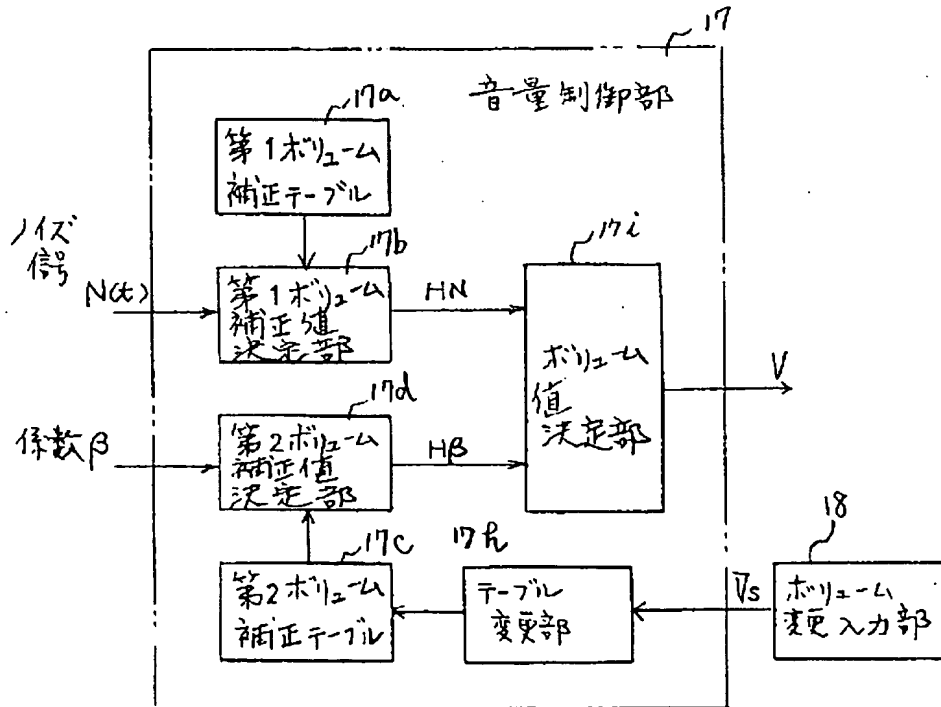 17
音量制御部
17a
第1ボリューム
補正テーブル
ノイズ
信号
N(t)
17b
第1ボリューム
補正値
決定部
HN
17i
ボリューム
値
決定部
V
係数β
17d
第2ボリューム
補正値
決定部
Hβ
17c
第2ボリューム
補正テーブル
17h
テーブル
変更部
Vs
18
ボリューム
変更入力部